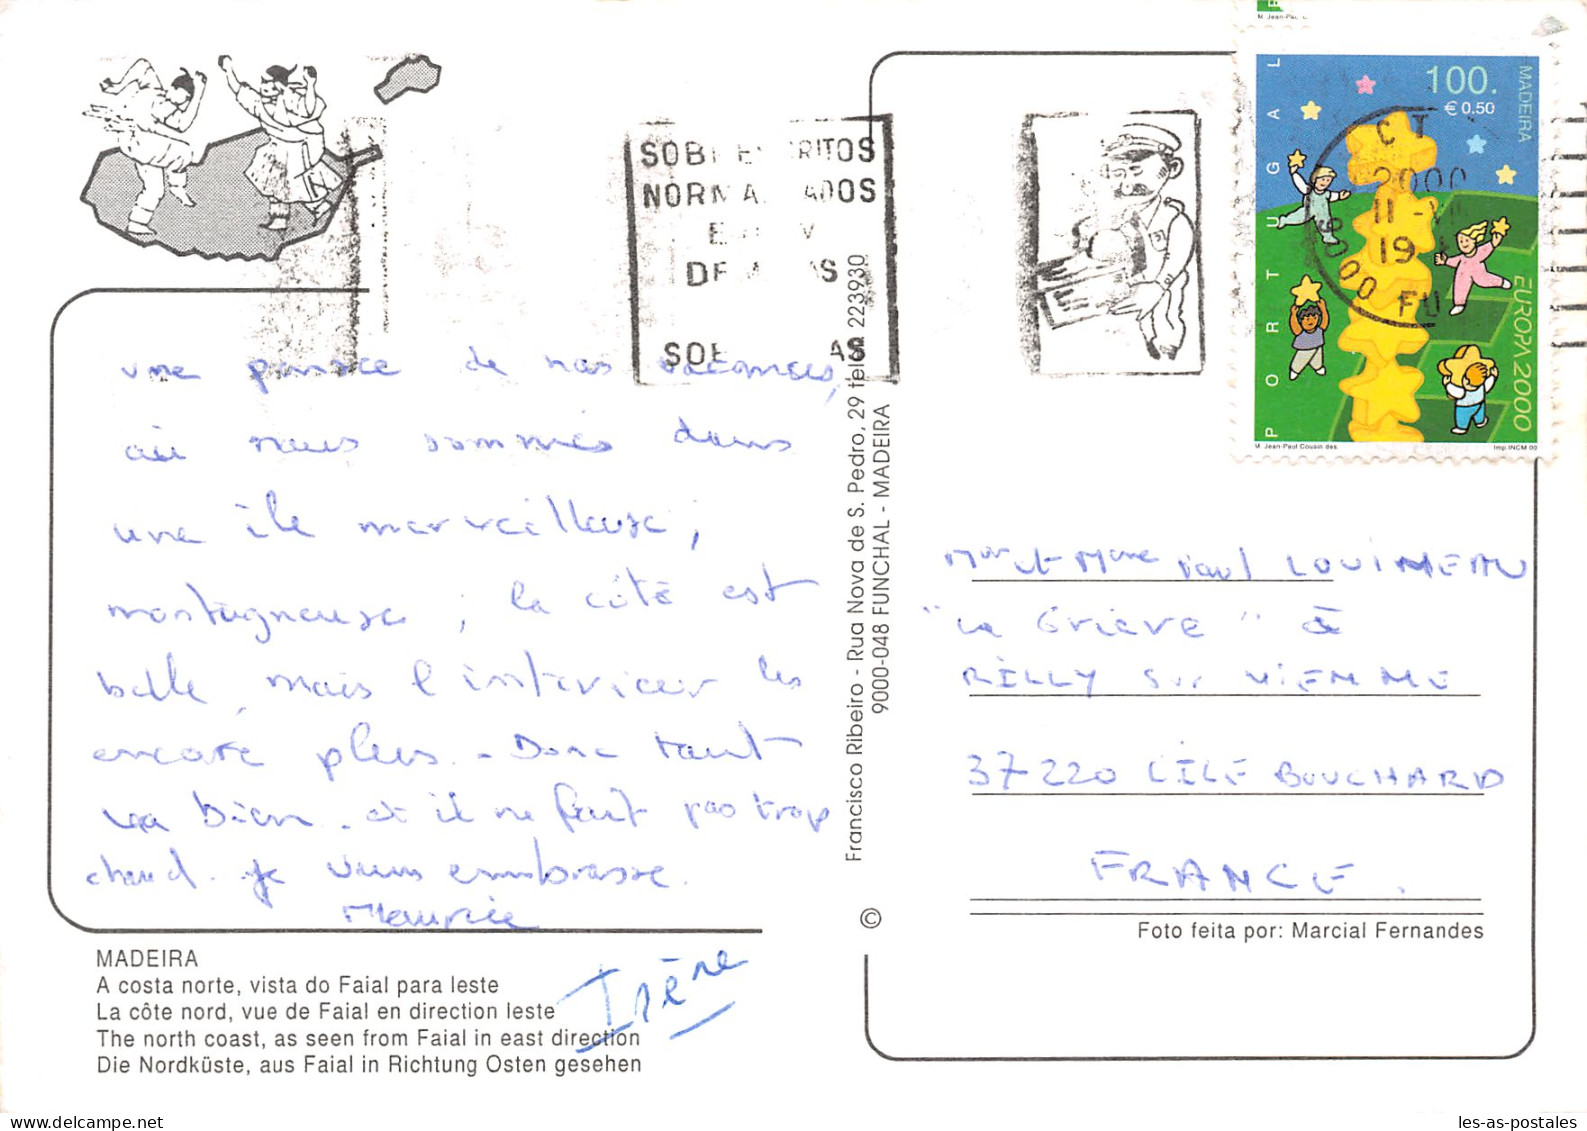 une pensée de nos vacances,
où nous sommes dans
une île merveilleuse,
montagneuse, la côte est
belle, mais l'intérieur les
encore plus. Donc tout
va bien. et il ne fait pas trop
chaud. Je vous embrasse.
Maurice
Irène
MADEIRA
A costa norte, vista do Faial para leste
La côte nord, vue de Faial en direction leste
The north coast, as seen from Faial in east direction
Die Nordküste, aus Faial in Richtung Osten gesehen
Francisco Ribeiro - Rua Nova de S. Pedro, 29 Telef. 223930
9000-048 FUNCHAL - MADEIRA
©
SOB
RITOS
NORMA ADOS
E V
DE
S
SOB
AS
M. Jean-Paul C
PORTUGAL
100.
€ 0.50
MADEIRA
EUROPA 2000
M. Jean-Paul Cousin des.
Imp.INCM 00
CT
2000
11-VII
19
9000 FU
Mr et Mme Paul LOUINEAU
"La Grieve" à
RILLY sur VIENNE
37220 L'ILE BOUCHARD
FRANCE.
Foto feita por: Marcial Fernandes
les-as-postales.com